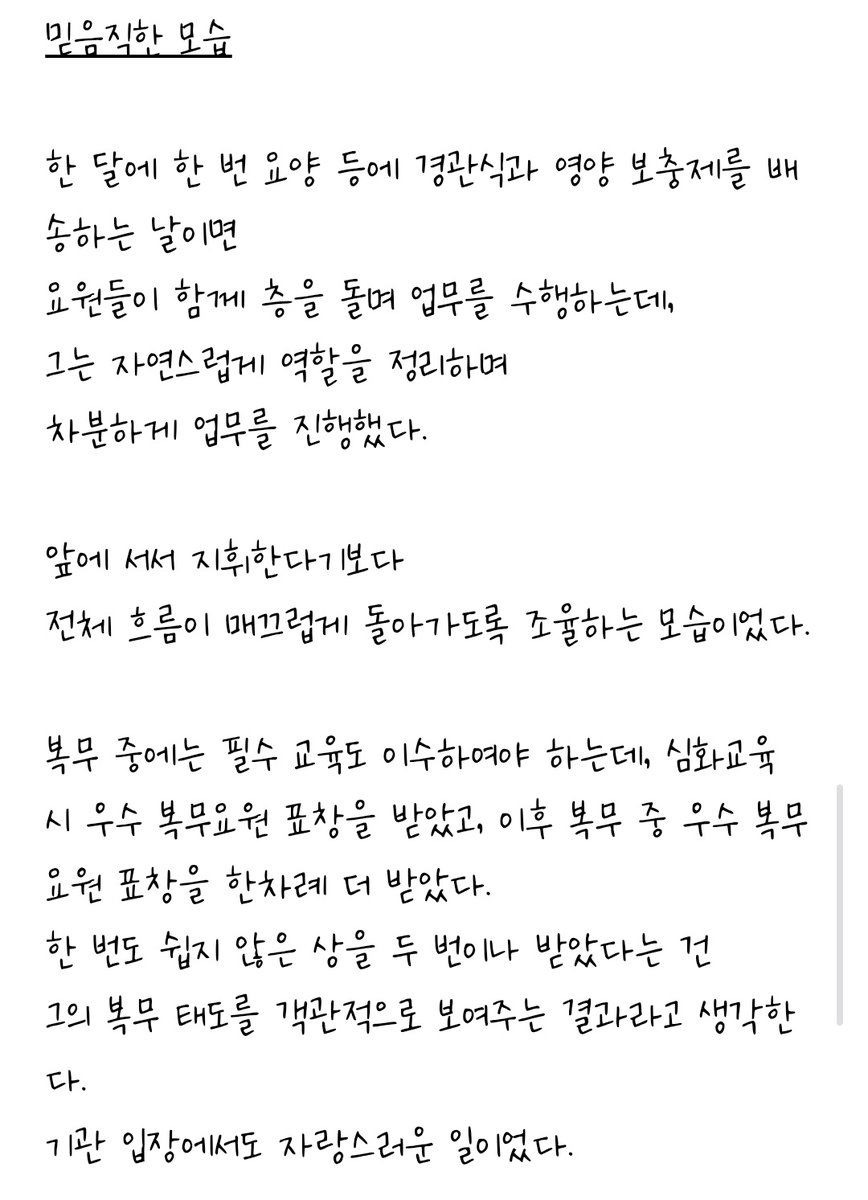 믿음직한 모습
한 달에 한 번 요양 등에 경관식과 영양 보충제를 배
송하는 날이면
요원들이 함께 층을 돌며 업무를 수행하는데,
그는 자연스럽게 역할을 정리하며
차분하게 업무를 진행했다.
앞에 서서 지휘한다기보다
전체 흐름이 매끄럽게 돌아가도록 조율하는 모습이었다.
복무 중에는 필수 교육도 이수하여야 하는데, 심화교육
시 우수 복무요원 표창을 받았고, 이후 복무 중 우수 복무
요원 표창을 한차례 더 받았다.
한 번도 쉽지 않은 상을 두 번이나 받았다는 건
그의 복무 태도를 객관적으로 보여주는 결과라고 생각한
다.
기관 입장에서도 자랑스러운 일이었다.